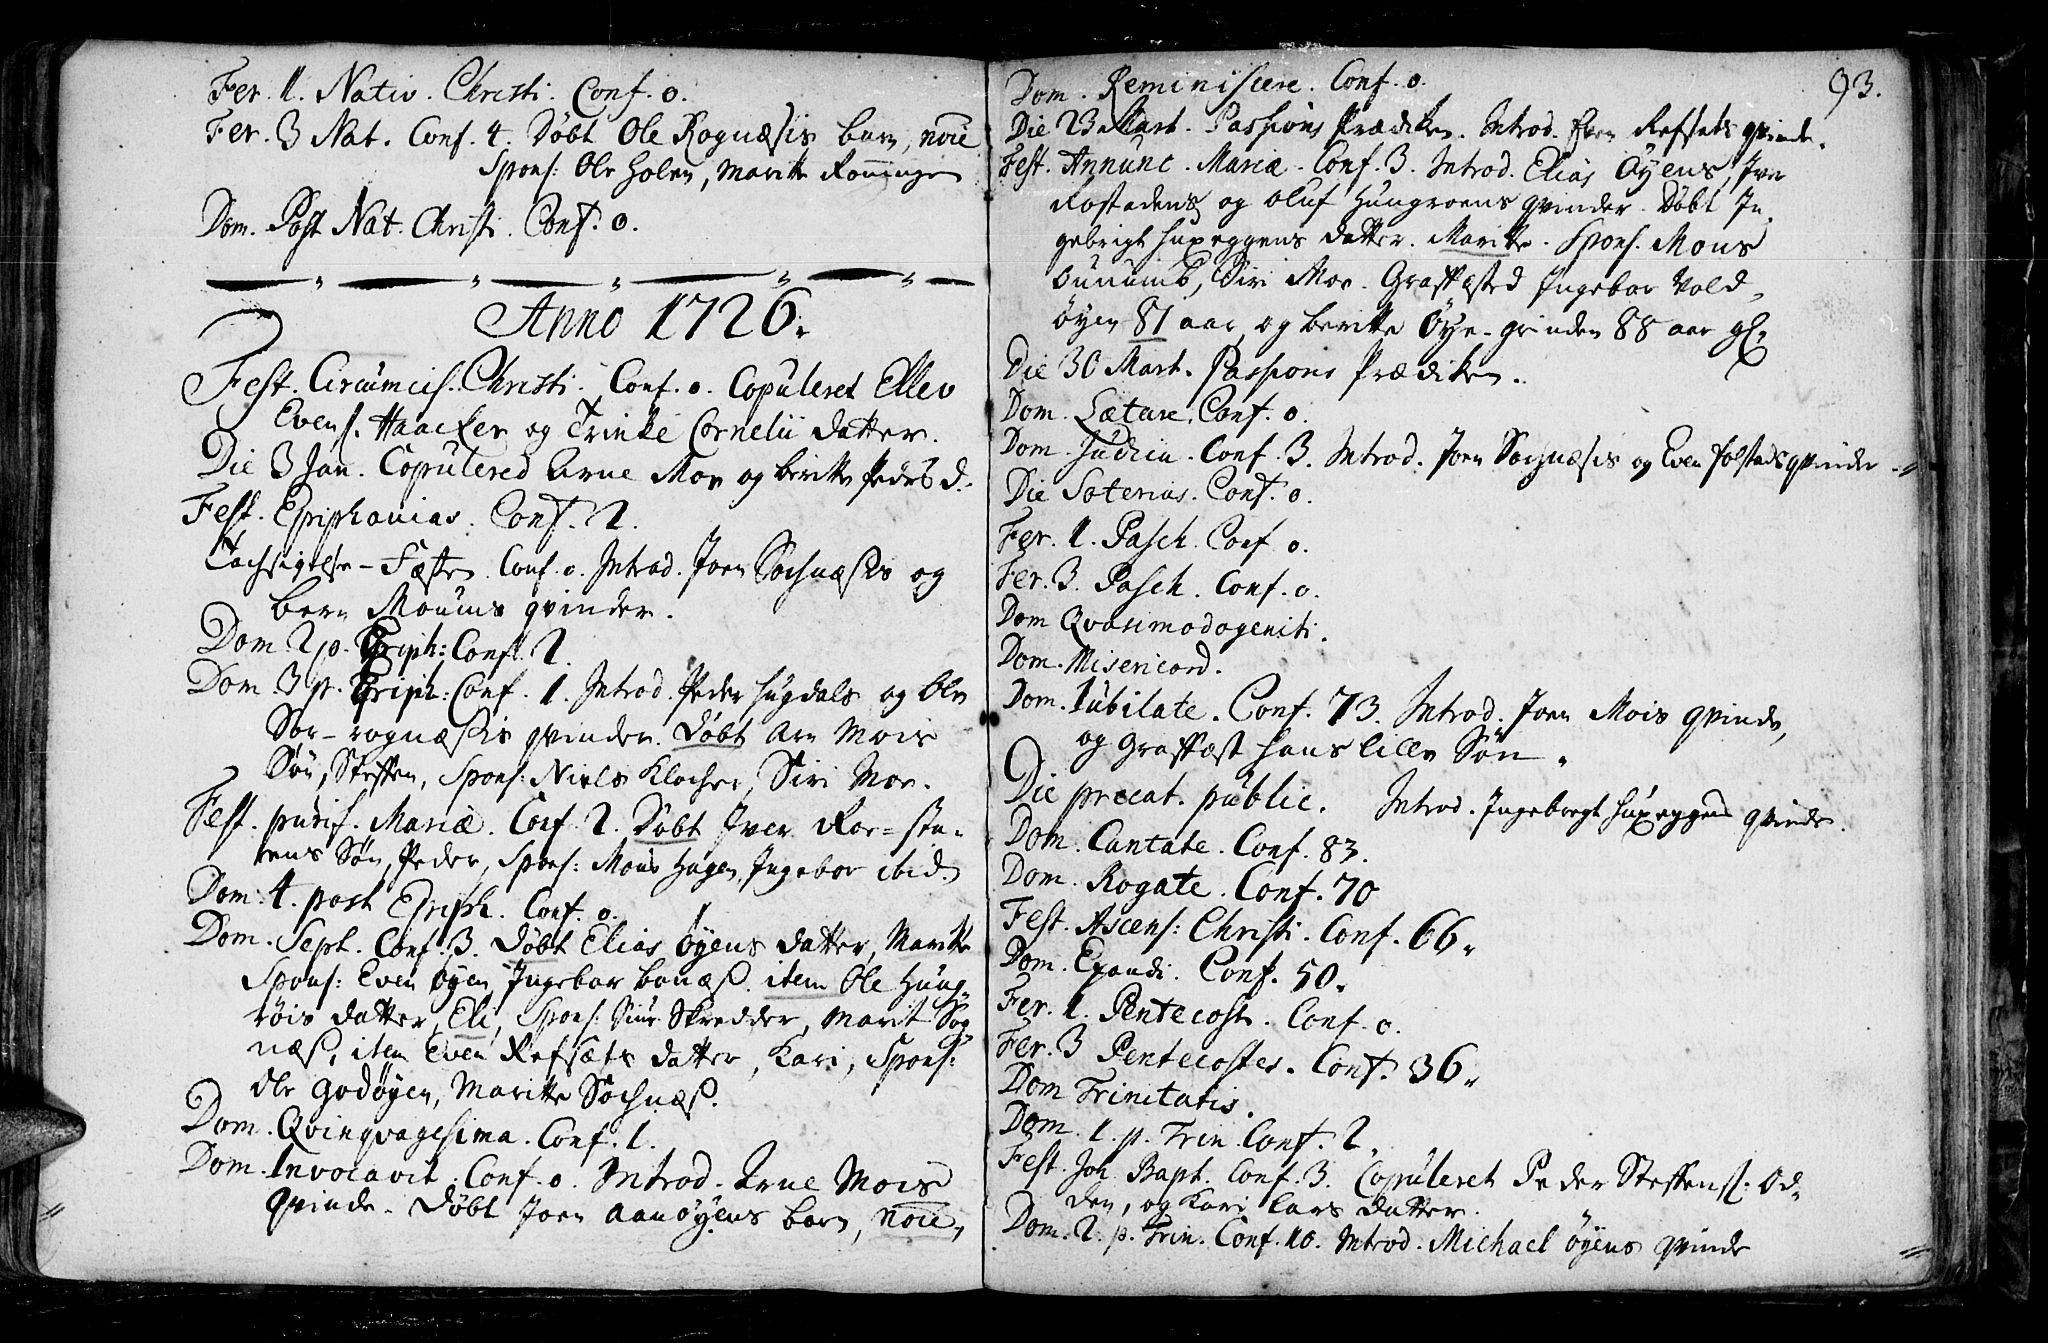 Fer. 1. Nativ. Christi. Conf. 0.
Fer. 3 Nat. Conf. 4. Døbt Ole Rognæsis barn, noīe
Spons: Ole Holen, Maritte Ronningen
Dom. Post Nat. Christi. Conf. 0.
Anno 1726.
Fest. Circumcis. Christi. Conf. 0. Copuleret Ellev
Evens. Haacker og Trinke Cornelii datter.
Die 3 Jan. Copulered Arne Moe og Beritte Peders d.
Fest. Epiphanias. Conf. 2.
Tachsigelse-Fæsten. Conf. 0. Introd. Joen Sochnæsis og
Bern Mouums qvinder.
Dom 2 p. Epiph: Conf. 2.
Dom. 3 p. Epiph: Conf. 1. Introd. Peder Hugdals og Ole
Sør-rognæsis qvinder. Døbt Arn Mois
Søn, Steffen, Spons: Niels Klocher, Siri Moe.
Fest. purif. Mariæ. Conf. 2. Døbt Iver Ros-sta-
dens Søn, Peder, Spons: Mons Hagen, Ingebor ibid.
Dom: 4. post Epiph. Conf. 0.
Dom. Sept. Conf. 3. Døbt Elias Øyens datter, Maritte
Spons: Even Øyen, Ingebor Bonæs. item Ole Hung-
røis datter, Eli, Spons: Siur Skredder, Marit Sog-
næs, item Even Refsæts datter, Kari, Spons:
Ole Godøyen, Maritte Sochnæs.
Dom. Qvinqvagesima. Conf. 1.
Dom. Invocavit. Conf. 0. Introd. Arne Mois
qvinde. Døbt Joen Aanøyens barn, noīe,
93.
Dom. Reminiscere. Conf. 0.
Die 23 Mart. Passions Prædiken. Introd. Even Refsets qvinde.
Fest. Annunc. Mariæ. Conf. 3. Introd. Elias Øyens, Iver
Rostadens og Oluf Hungroens qvinder. Døbt In-
gebrigt Huxeggens datter. Maritte. Spons. Mons
Siri Moe. Graffæsted Ingebor Vold-
øyen 81 aar, og Beritte Øye-grinden 88 aar gl.
Die 30 Mart. Passions Prædiken.
Dom. Lætare. Conf. 0.
Dom. Judica. Conf. 3. Introd. Joen Sochnæsis og Even Folstads qvinder
Die Soterias. Conf. 0.
Fer. 1. Pasch. Conf. 0.
Fer. 3. Pasch. Conf. 0.
Dom Qvasimodogeniti.
Dom. Misericord.
Dom. Jubilate. Conf. 73. Introd. Joen Mois qvinde,
og Graffæst hans lille Søn.
Die precat. public. Introd. Ingeborgt Huxeggens qvinde.
Dom. Cantate. Conf. 83.
Dom. Rogate. Conf. 70
Fest. Ascens: Christi. Conf. 66.
Dom. Exaudi. Conf. 50.
Fer. 1. Pentecost. Conf. 0.
Fer. 3 Pentecostes. Conf. 36.
Dom Trinitatis.
Dom. 1. p. Trin. Conf. 2.
Fest. Joh. Bapt. Conf. 3. Copuleret Peder Steffens: Od-
den, og Kari Lars datter.
Dom. 2. p. Trin. Conf. 10. Introd. Michael Øyens qvinde